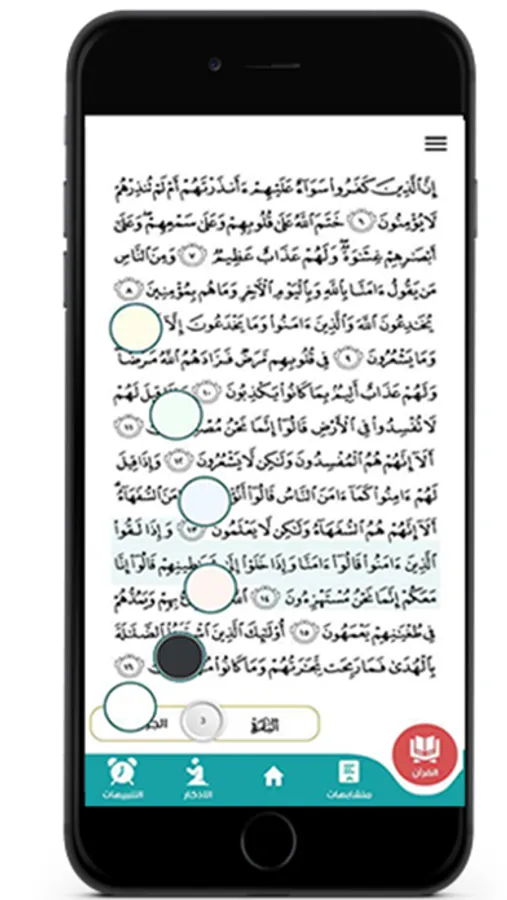 إِنَّ الَّذِينَ كَفَرُوا سَوَآءٌ عَلَيْهِمْ ءَأَنذَرْتَهُمْ أَمْ لَمْ تُنذِرْهُمْ
لَا يُؤْمِنُونَ ٦ خَتَمَ اللَّهُ عَلَىٰ قُلُوبِهِمْ وَعَلَىٰ سَمْعِهِمْ وَعَلَىٰ
أَبْصَٰرِهِمْ غِشَٰوَةٌ وَلَهُمْ عَذَابٌ عَظِيمٌ ٧ وَمِنَ النَّاسِ
مَن يَقُولُ ءَامَنَّا بِاللَّهِ وَبِالْيَوْمِ الْآخِرِ وَمَا هُم بِمُؤْمِنِينَ ٨
يُخَٰدِعُونَ اللَّهَ وَالَّذِينَ ءَامَنُوا وَمَا يَخْدَعُونَ إِلَّا
وَمَا يَشْعُرُونَ ٩ فِي قُلُوبِهِم مَّرَضٌ فَزَادَهُمُ اللَّهُ مَرَضًا
وَلَهُمْ عَذَابٌ أَلِيمٌ بِمَا كَانُوا يَكْذِبُونَ ١٠ قِيلَ لَهُمْ
لَا تُفْسِدُوا فِي الْأَرْضِ قَالُوا إِنَّمَا نَحْنُ ١١
أَلَآ إِنَّهُمْ هُمُ الْمُفْسِدُونَ وَلَٰكِن لَّا يَشْعُرُونَ ١٢ وَإِذَا قِيلَ
لَهُمْ ءَامِنُوا كَمَآ ءَامَنَ النَّاسُ قَالُوٓا السُّفَهَآءُ
أَلَآ إِنَّهُمْ هُمُ السُّفَهَآءُ وَلَٰكِن لَّا يَعْلَمُونَ ١٣ وَإِذَا لَقُوا
الَّذِينَ ءَامَنُوا قَالُوٓا ءَامَنَّا وَإِذَا خَلَوْا إِلَىٰ شَيَٰطِينِهِمْ قَالُوٓا إِنَّا
مَعَكُمْ إِنَّمَا نَحْنُ مُسْتَهْزِءُونَ ١٤ بِهِمْ وَيَمُدُّهُمْ
فِي طُغْيَٰنِهِمْ يَعْمَهُونَ ١٥ أُولَٰٓئِكَ الَّذِينَ الضَّلَٰلَةَ
بِالْهُدَىٰ فَمَا رَبِحَت تِّجَٰرَتُهُمْ وَمَا كَانُوا ١٦
البقرة ٣
القرآن متشابهات الأذكار التنبيهات